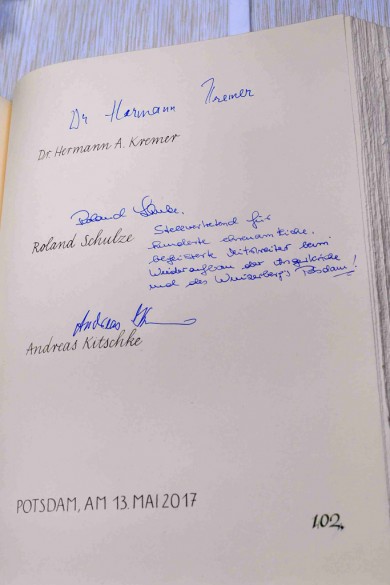 Dr Hermann Kremer
Dr. Hermann A. Kremer
Roland Schulze.
Roland Schulze
Stellvertretend für
hunderte ehrenamtliche,
begeisterte Mitstreiter beim
Wiederaufbau der
und des Winzerbergs Potsdam!
Andreas
Andreas Kitschke
POTSDAM, AM 13. MAI 2017
102.